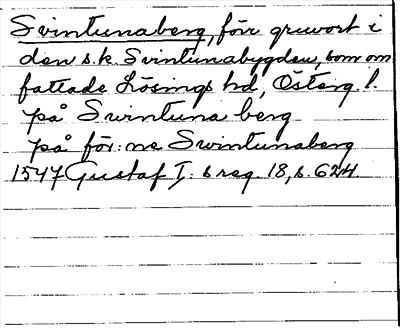 Svintunaberg, förr gruvort i
den s.k. Svintunabygden, som om
fattade Lösings hd, Österg. l.
på Swintuna berg
på för:ne Swintunaberg
1547 Gustaf I:s reg. 18, s. 624.